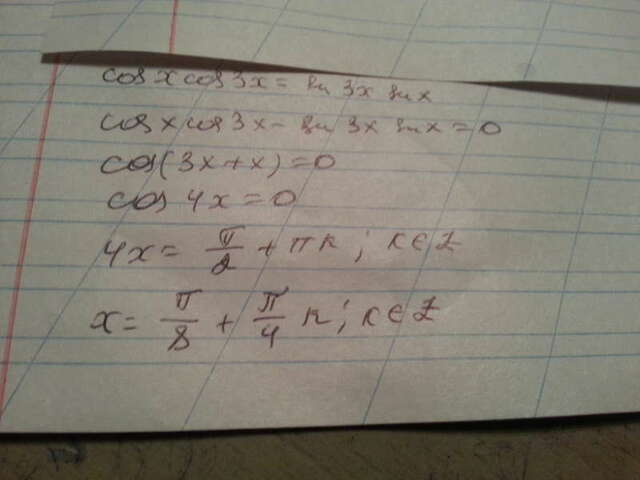 cos x cos 3x = sin 3x sin x
cos x cos 3x - sin 3x sin x = 0
cos(3x+x)=0
cos 4x = 0
4x = π/2 + πk; k∈Z
x = π/8 + π/4 k; k∈Z